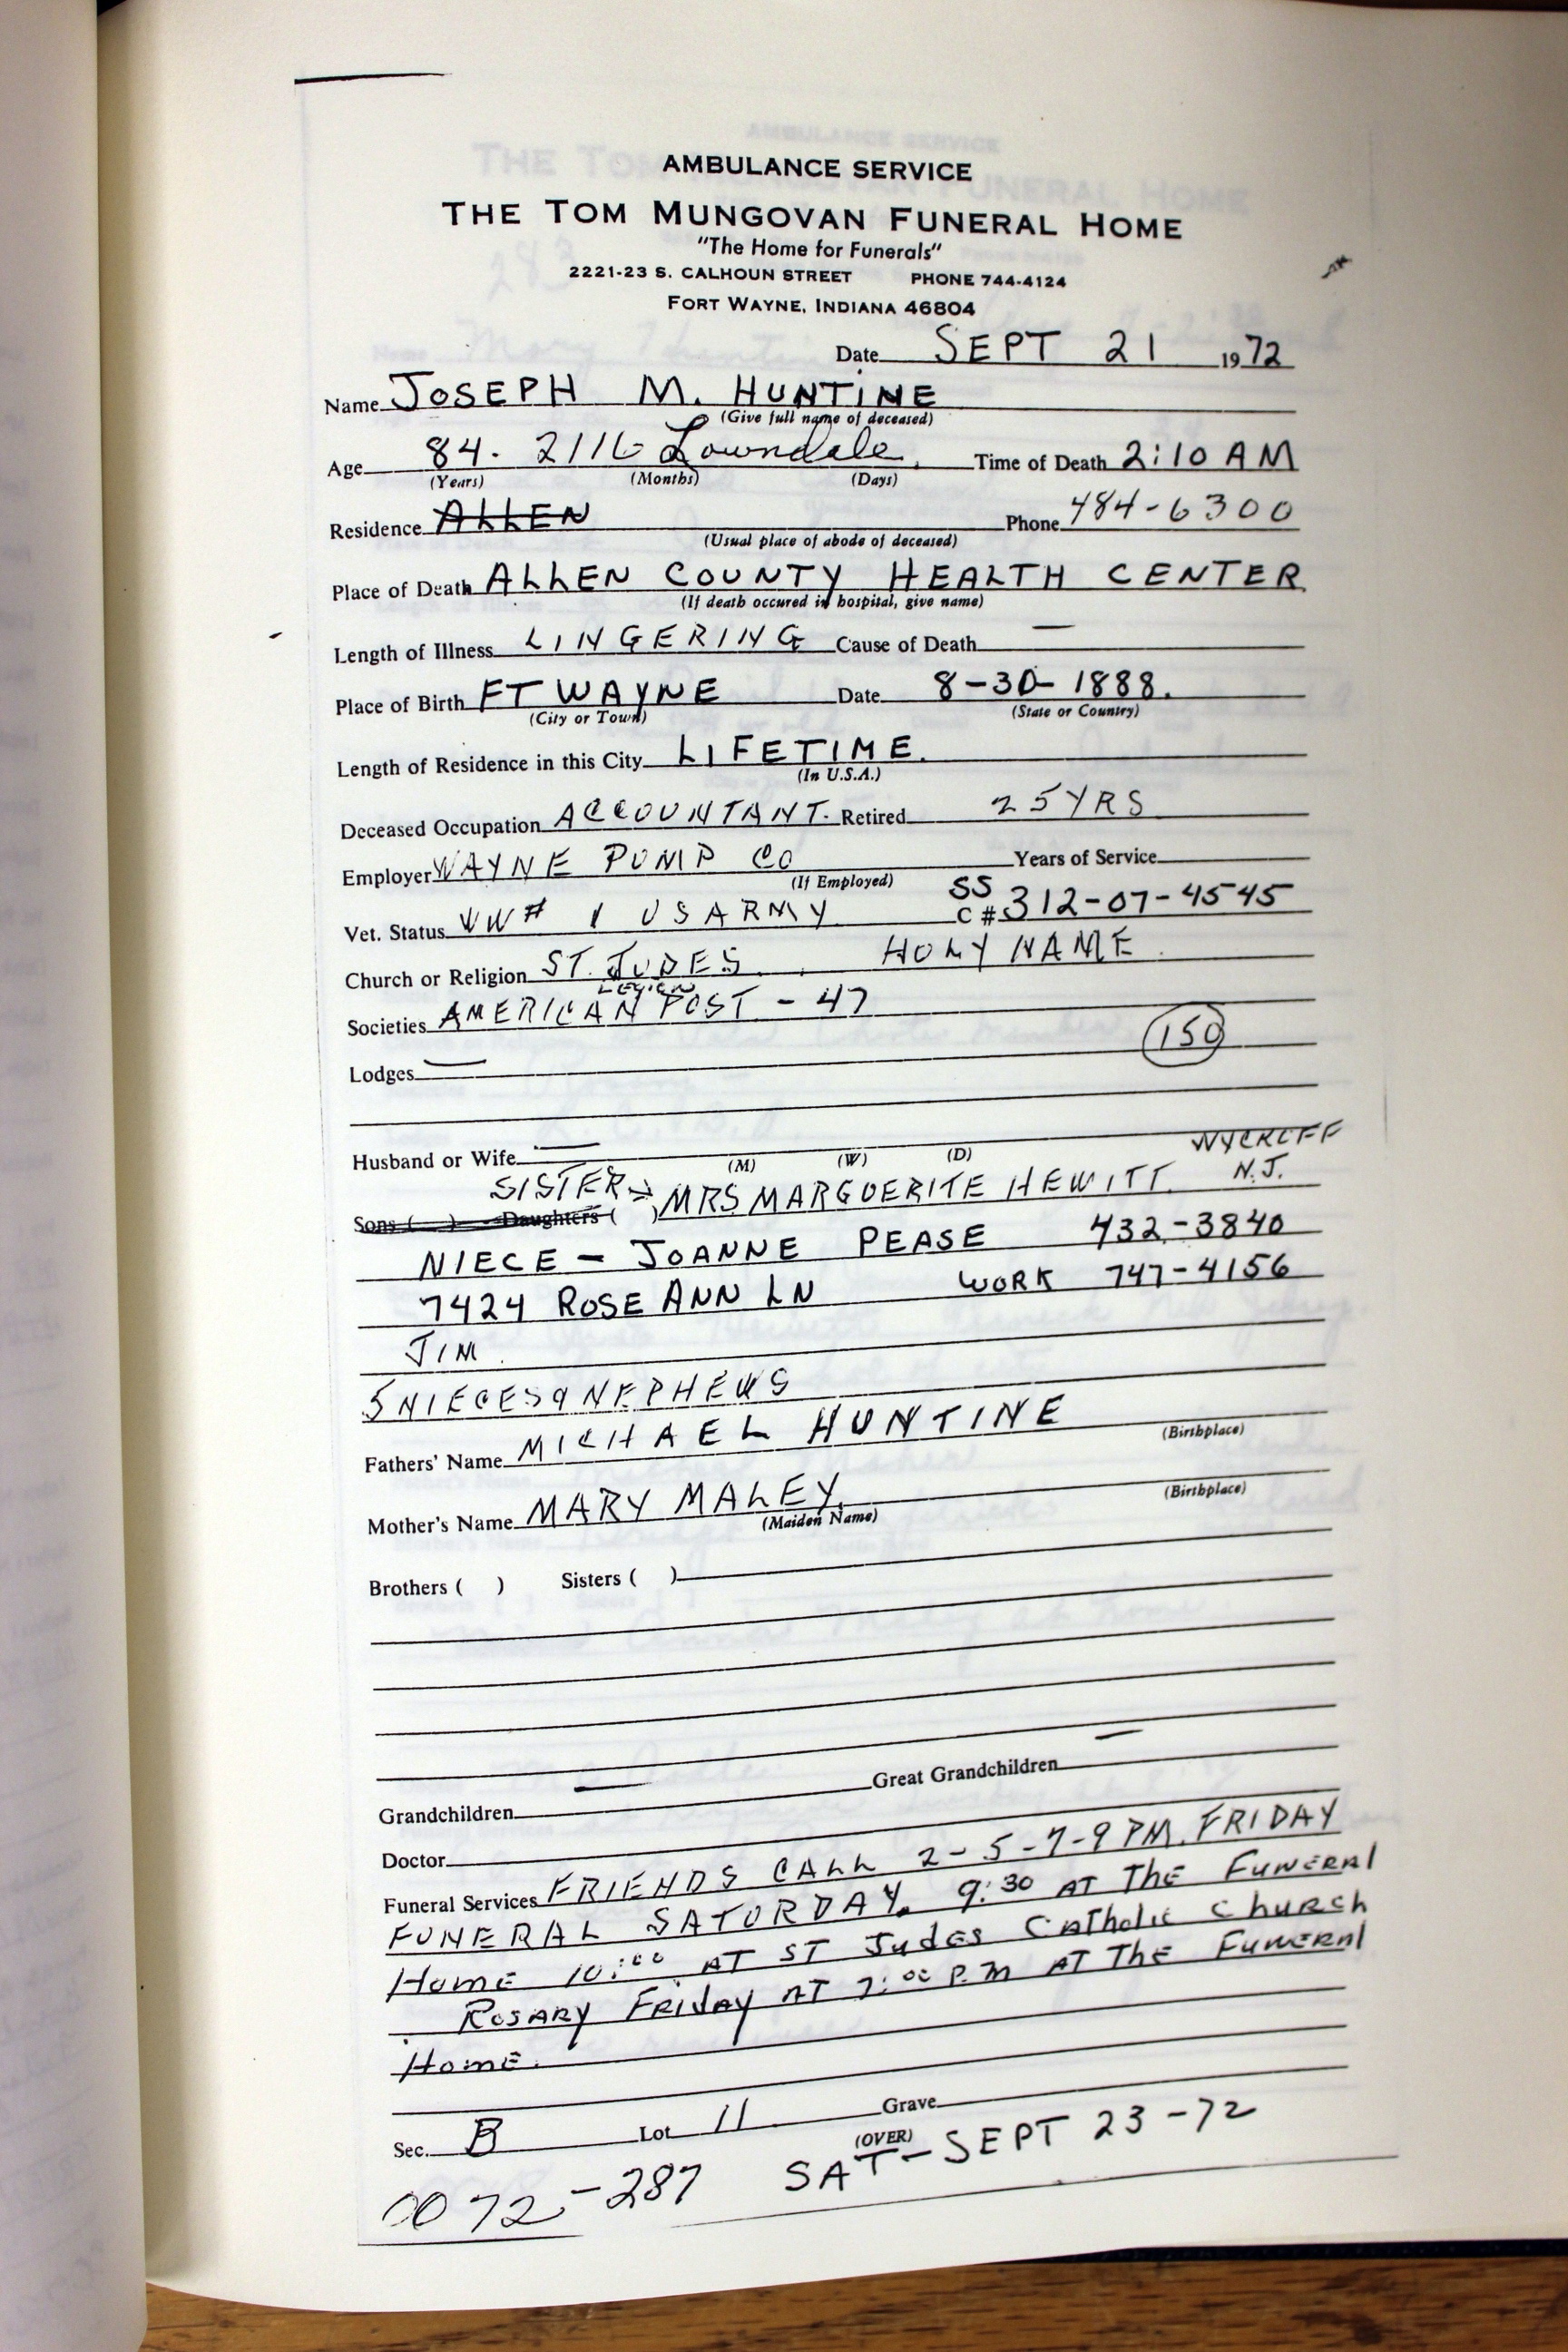 AMBULANCE SERVICE
THE TOM MUNGOVAN FUNERAL HOME
"The Home for Funerals"
2221-23 S. CALHOUN STREET PHONE 744-4124
FORT WAYNE, INDIANA 46804
Date SEPT 21 1972
Name JOSEPH M. HUNTINE
(Give full name of deceased)
Age 84. 2116 Lowndale. Time of Death 2:10 AM
(Years) (Months) (Days)
Residence ALLEN Phone 484-6300
(Usual place of abode of deceased)
Place of Death ALLEN COUNTY HEALTH CENTER
(If death occured in hospital, give name)
Length of Illness LINGERING Cause of Death —
Place of Birth FT WAYNE Date 8-30-1888.
(City or Town) (State or Country)
Length of Residence in this City LIFETIME.
(In U.S.A.)
Deceased Occupation ACCOUNTANT. Retired 25 YRS
Employer WAYNE PUMP CO Years of Service
(If Employed)
Vet. Status WW# 1 US ARMY SS C# 312-07-4545
Church or Religion ST. JUDES. HOLY NAME.
LEGION
Societies AMERICAN POST - 47
150
Lodges —
Husband or Wife —
(M) (W) (D)
WYCKOFF
N.J.
SISTER
Sons ( ) Daughters ( ) MRS MARGUERITE HEWITT
NIECE - JOANNE PEASE 432-3840
7424 ROSE ANN LN WORK 747-4156
JIM.
5 NIECES 9 NEPHEWS
Fathers' Name MICHAEL HUNTINE
(Birthplace)
Mother's Name MARY MALEY.
(Maiden Name) (Birthplace)
Brothers ( ) Sisters ( )
Grandchildren — Great Grandchildren —
Doctor
Funeral Services FRIENDS CALL 2-5-7-9 PM. FRIDAY
FUNERAL SATURDAY. 9:30 AT THE FUNERAL
Home 10:00 AT ST Judes Catholic Church
ROSARY FRIDAY AT 7:00 P.M AT THE FUNERAL
Home.
Sec. B Lot 11 Grave
(OVER)
0072-287 SAT-SEPT 23-72